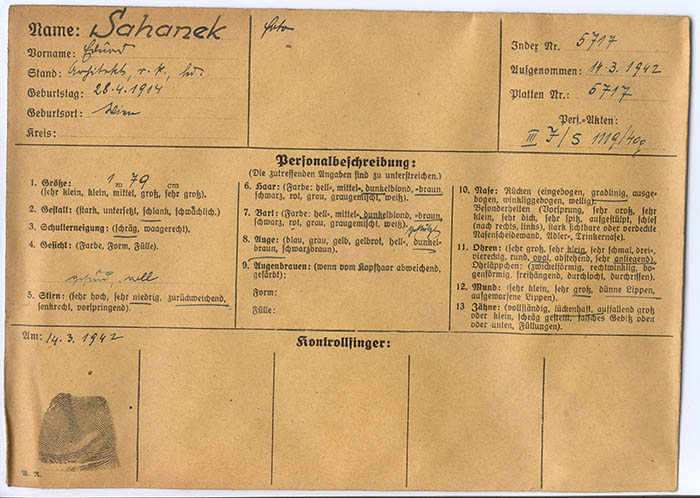 Name: Sahanek
Vorname: Eduard
Stand: Architekt, r. k., led.
Geburtstag: 28.4.1914
Geburtsort: Wien
Kreis:
Foto
Index Nr. 5717
Aufgenommen: 14.3.1942
Platten Nr.: 5717
Pers.-Akten:
III J/S 1119/40g
Personalbeschreibung:
(Die zutreffenden Angaben sind zu unterstreichen.)
1. Größe: 1 m 79 cm
(sehr klein, klein, mittel, groß, sehr groß).
2. Gestalt: (stark, untersetzt, schlank, schwächlich.)
3. Schulterneigung: (schräg, waagerecht).
4. Gesicht: (Farbe, Form, Fülle).
gesund, voll
5. Stirn: (sehr hoch, sehr niedrig, zurückweichend,
senkrecht, vorspringend).
6. Haar: (Farbe: hell-, mittel-, dunkelblond, -braun,
schwarz, rot, grau, graugemischt, weiß).
7. Bart: (Farbe: hell-, mittel-, dunkelblond, -braun,
schwarz, rot, grau, graugemischt, weiß).
8. Auge: (blau, grau, gelb, gelbrot, hell-, dunkel-
braun, schwarzbraun).
9. Augenbrauen: (wenn vom Kopfhaar abweichend,
gefärbt):
Form:
Fülle:
10. Nase: Rücken (eingebogen, gradlinig, ausge-
bogen, winkliggebogen, wellig).
Besonderheiten (Vorsprung, sehr groß, sehr
klein, sehr dick, sehr spitz, aufgestülpt, schief
(nach rechts, links), stark sichtbare oder verdeckte
Nasenscheidewand, Adler-, Trinkernase).
11. Ohren: (sehr groß, sehr klein, sehr schmal, drei-
viereckig, rund, oval, abstehend, sehr anliegend).
Ohrläppchen: (zwickelförmig, rechtwinklig, bo-
genförmig, freihängend, durchlocht, durchrissen).
12. Mund: (sehr klein, sehr groß, dünne Lippen,
aufgeworfene Lippen).
13 Zähne: (vollständig, lückenhaft, auffallend groß
oder klein, schräg gestellt, falsches Gebiß oben
oder unten, Füllungen).
Am: 14.3.1942
Kontrollfinger: